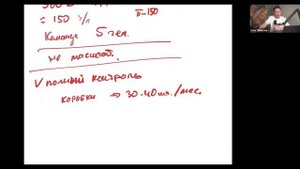 ≈ 150 т/р
V-150
Команда 5 чел.
не масштаб.
V полный контроль
коробки → 30-40 шт./мес.